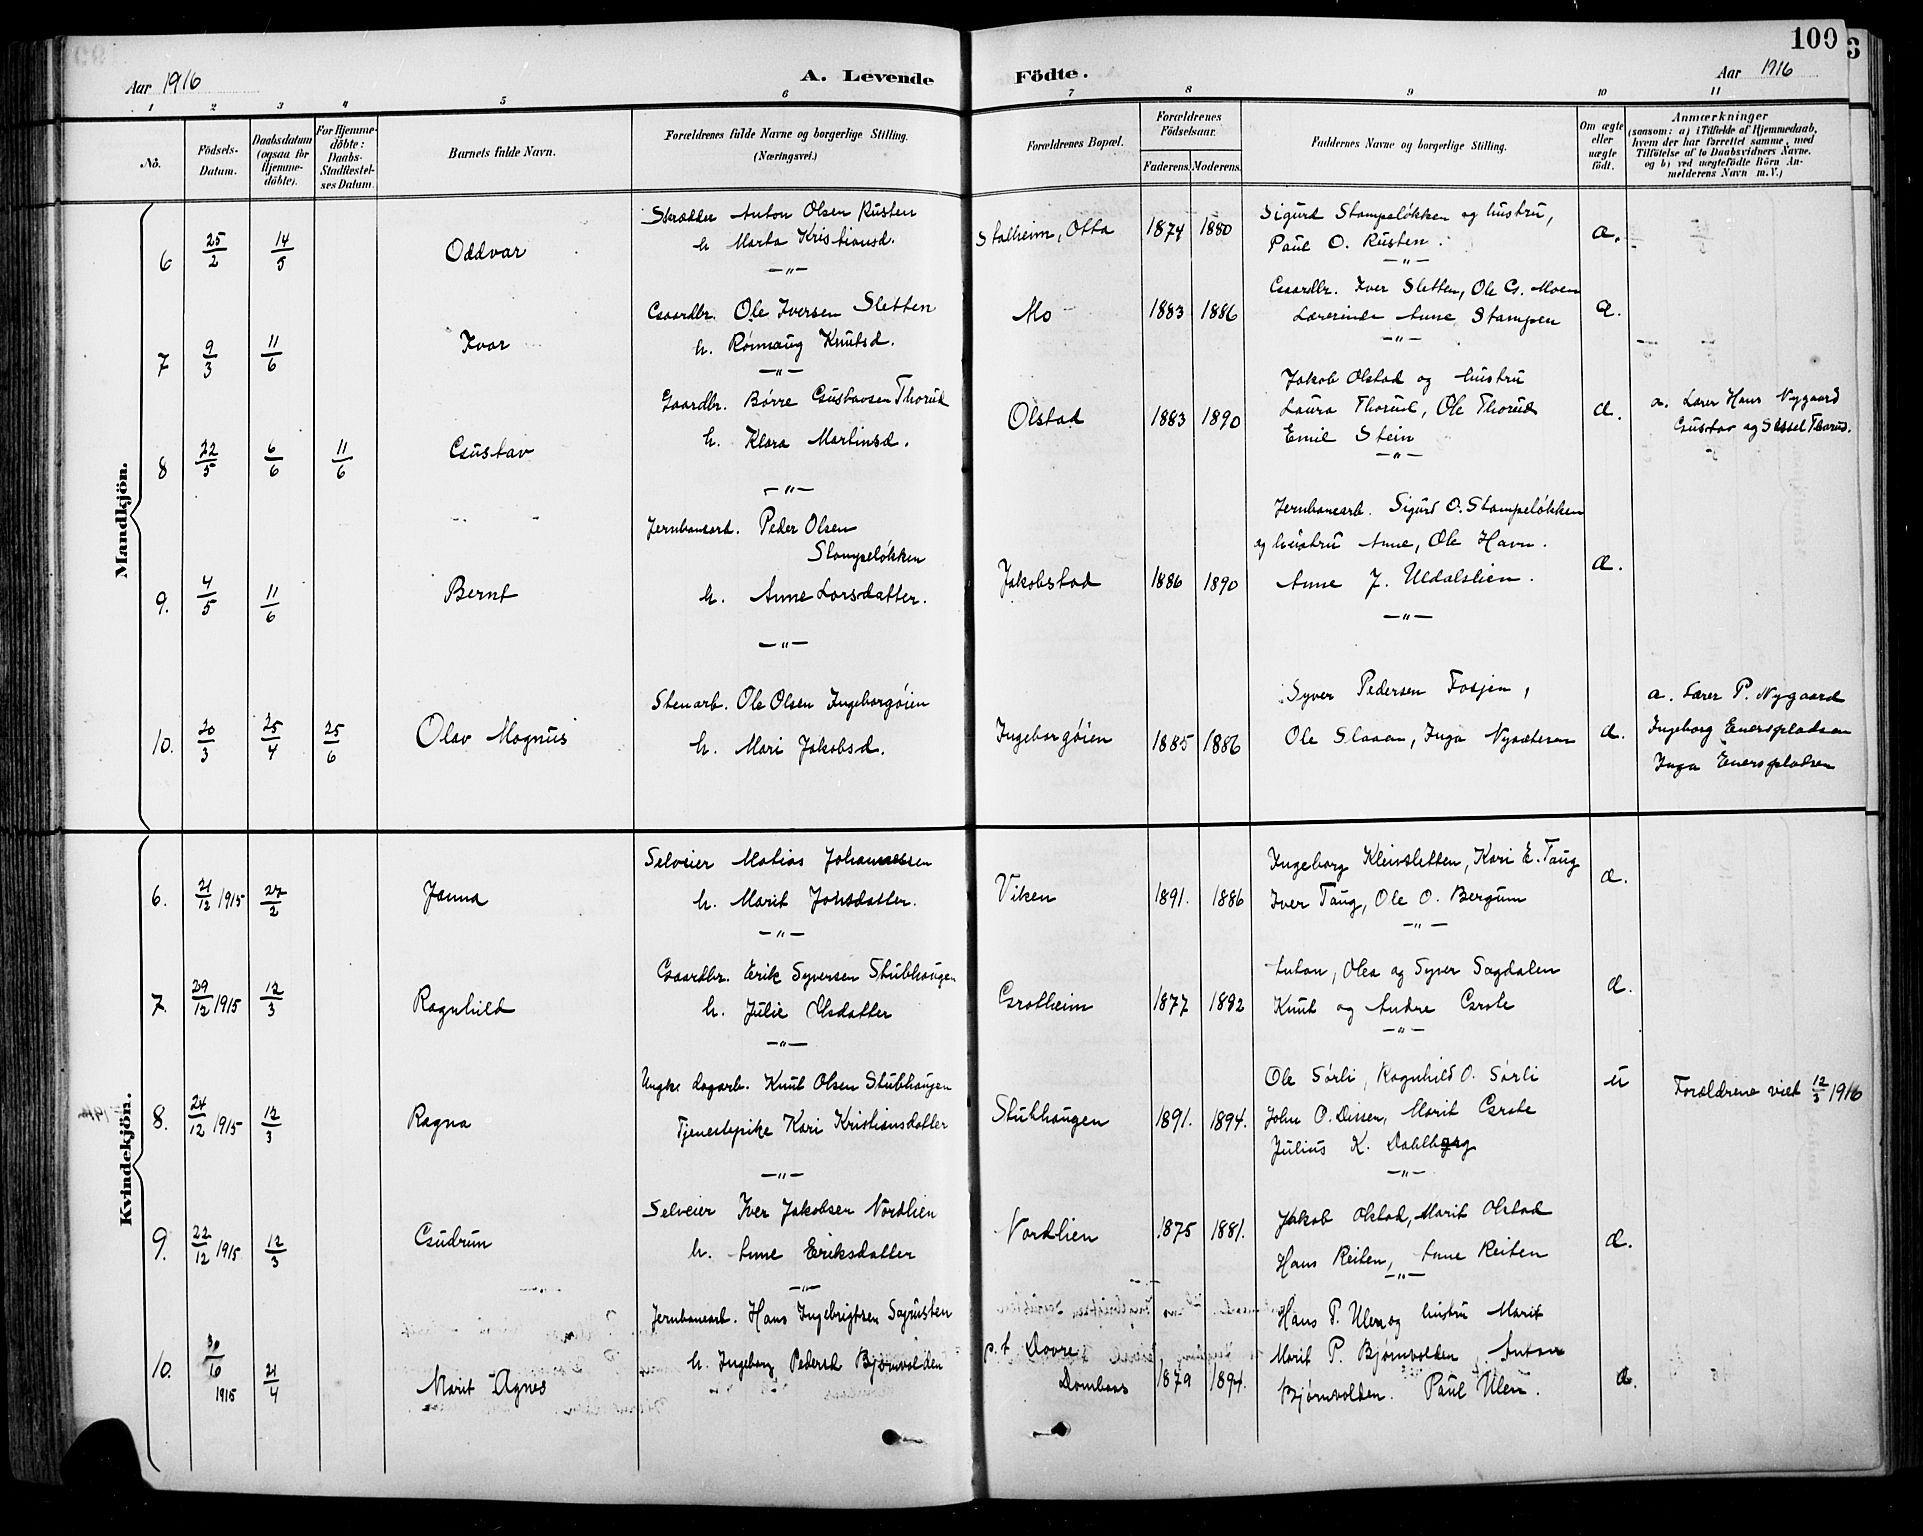 100
3
Aar 1916
A. Levende
Födte.
Aar 1916
1 2 3 4 5 6 7 8 9 10 11
Nö.
Födsels-
Datum.
Daabsdatum
(ogsaa for
Hjemme-
döbte).
For Hjemme-
döbte:
Daabs-
Stadfæstel-
ses Datum.
Barnets fulde Navn.
Forældrenes fulde Navne og borgerlige Stilling.
(Næringsvei.)
Forældrenes Bopæl.
Forældrenes
Födselsaar.
Faderens.
Moderens.
Faddernes Navne og borgerlige Stilling.
Om ægte
eller
uægte
født.
Anmærkninger
(saasom: a) i Tilfælde af Hjemmedaab,
hvem der har forrettet samme, med
Tilföielse af to Daabsvidners Navne.
og b) ved uægtefödte Börn An-
melderens Navn m. V.)
Mandkjön.
6 25/2 14/5 Oddvar
Skrædder Anton Olsen Rusten
h. Marta Kristiansd.
Stalheim, Otta 1874 1880
Sigurd Stampeløkken og hustru,
Paul O. Rusten.
a.
7 9/3 11/6 Ivar
Gaardbr. Ole Iversen Sletten
h. Rønnaug Knutsd.
Mo 1883 1886
Gaardbr. Iver Sletten, Ole G. Moen
Lærerinde Anne Stampen
a.
8 22/5 6/6 11/6 Gustav
Gaardbr. Børre Gustavsen Thorud
h. Klara Martinsd.
Olstad 1883 1890
Jakob Olstad og hustru
Laura Thorud, Ole Thorud
Emil Stein
a.
a. Lærer Hans Nygaard
Gustav og Sissel Thorud.
9. 4/5 11/6 Bernt
Jernbanearb. Peder Olsen
Stampeløkken
h. Anne Larsdatter.
Jakobstad 1886 1890
Jernbanearb. Sigurd O. Stampeløkken
og hustru Anne, Ole Havn.
Anne J. Uldalslien.
a.
10. 20/3 25/4 25/6 Olav Magnus
Stenarb. Ole Olsen Ingeborgøien
h. Mari Jakobsd.
Ingeborgøien 1885 1886
Syver Pedersen Fosjen,
Ole Slaaen, Inga Nysæteren
a.
a. Lærer P. Nygaard
Ingeborg Enerspladsen
Inga Enerspladsen
Kvindekjön.
6. 21/12 1915 27/2 Janna
Selveier Matias Johannessen
h. Marit Johsdatter.
Viken 1891. 1886
Ingeborg Kleivsletten, Kari E. Taug
Iver Taug, Ole O. Bergum
a.
7. 29/12 1915 12/3 Ragnhild
Gaardbr. Erik Syversen Stubhaugen
h. Julie Olsdatter
Grotheim 1877 1892
Anton, Olea og Syver Sagdalen
Knut og Andre Grote
a.
8. 24/12 1915 12/3 Ragna
Ungk. dagarb. Knut Olsen Stubhaugen
Tjenestepike Kari Kristiansdatter
Stubhaugen 1891. 1894.
Ole Sørli, Ragnhild O. Sørli
John O. Dissen, Marit Grote
Julius K. Dahlberg
u
Forældrene viet 12/3 1916
9. 22/12 1915 12/3 Gudrun
Selveier Iver Jakobsen Nordlien
h. Anne Eriksdatter
Nordlien 1875 1881.
Jakob Olstad, Marit Olstad
Hans Reiten, Anne Reiten
a.
10. 30/10 1915 21/4 Marit Agnes
Jernbanearb. Hans Ingebrigtsen Sagrusten
h. Ingeborg Pedersd Bjørnvolden
p. t Dovre
Dombaas 1879 1894.
Hans P. Ulen og hustru Marit
Marit P. Bjørnvolden Anton
Bjørnvolden. Paul Ulen.
a.